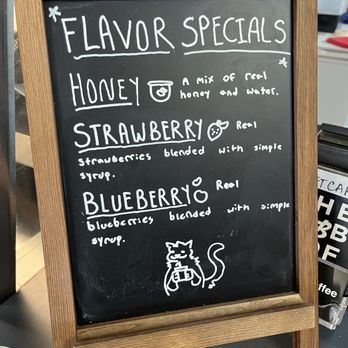 FLAVOR SPECIALS
HONEY A mix of real
honey and water.
STRAWBERRY Real
strawberries blended with simple
syrup.
BLUEBERRY Real
blueberries blended with simple
syrup.